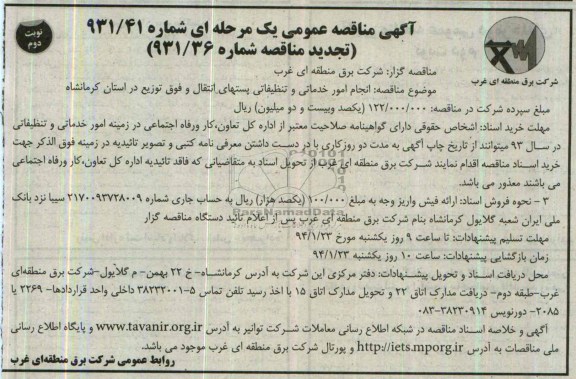 آگهی مناقصه عمومی یک مرحله ای شماره ۹۳۱/۴۱
(تجدید مناقصه شماره ۹۳۱/۳۶)
نوبت دوم
شرکت برق منطقه ای غرب
مناقصه گزار: شرکت برق منطقه ای غرب
موضوع مناقصه: انجام امور خدماتی و تنظیفاتی پستهای انتقال و فوق توزیع در استان کرمانشاه
مبلغ سپرده شرکت در مناقصه: ۱۲۲/۰۰۰/۰۰۰ (یکصد وبیست و دو میلیون) ریال
مهلت خرید اسناد: اشخاص حقوقی دارای گواهینامه صلاحیت معتبر از اداره کل تعاون،کار ورفاه اجتماعی در زمینه امور خدماتی و تنظیفاتی
در سـال ۹۳ میتوانند از تاریخ چاپ آگهی به مدت دو روزکاری با در دسـت داشتن معرفی نامه کتبی و تصویر تائیدیه در زمینه فوق الذکر جهت
خرید اسـناد مناقصه اقدام نمایند شـرکت برق منطقه ای غرب از تحویل اسناد به متقاضیانی که فاقد تائیدیه اداره کل تعاون،کار ورفاه اجتماعی
می باشند معذور می باشد.
۳ - نحوه فروش اسناد: ارائه فیش واریز وجه به مبلغ ۱۰۰/۰۰۰ (یکصد هزار) ریال به حساب جاری شماره ۲۱۷۰۰۹۳۷۲۸۰۰۹ سیبا نزد بانک
ملی ایران شعبه گلایول کرمانشاه بنام شرکت برق منطقه ای غرب پس از اعلام تائید دستگاه مناقصه گزار
مهلت تسلیم پیشنهادات: تا ساعت ۹ روز یکشنبه مورخ ۹۴/۱/۲۳
زمان بازگشایی پیشنهادات: ساعت ۱۰ روز یکشنبه ۹۴/۱/۲۳
محل دریافت اسـناد و تحویل پیشـنهادات: دفتر مرکزی این شرکت به آدرس کرمانشـاه- خ ۲۲ بهمن- م گلایول-شرکت برق منطقه‌ای
غرب-طبقه دوم- دریافت مدارک اتاق ۲۲ و تحویل مدارک اتاق ۱۵ با اخذ رسید تلفن تماس ۵-۳۸۲۳۲۰۰۱ داخلی واحد قراردادها- ۲۲۶۹ یا
۲۰۸۵- دورنویس ۳۸۲۳۰۹۱۴-۰۸۳
آگهی و خلاصه اسـناد مناقصه در شبکه اطلاع رسانی معاملات شـرکت توانیر به آدرس www.tavanir.org.ir و پایگاه اطلاع رسانی
ملی مناقصات به آدرس http://iets.mporg.ir و پورتال شرکت برق منطقه ای غرب موجود می باشد.
روابط عمومی شرکت برق منطقه‌ای غرب